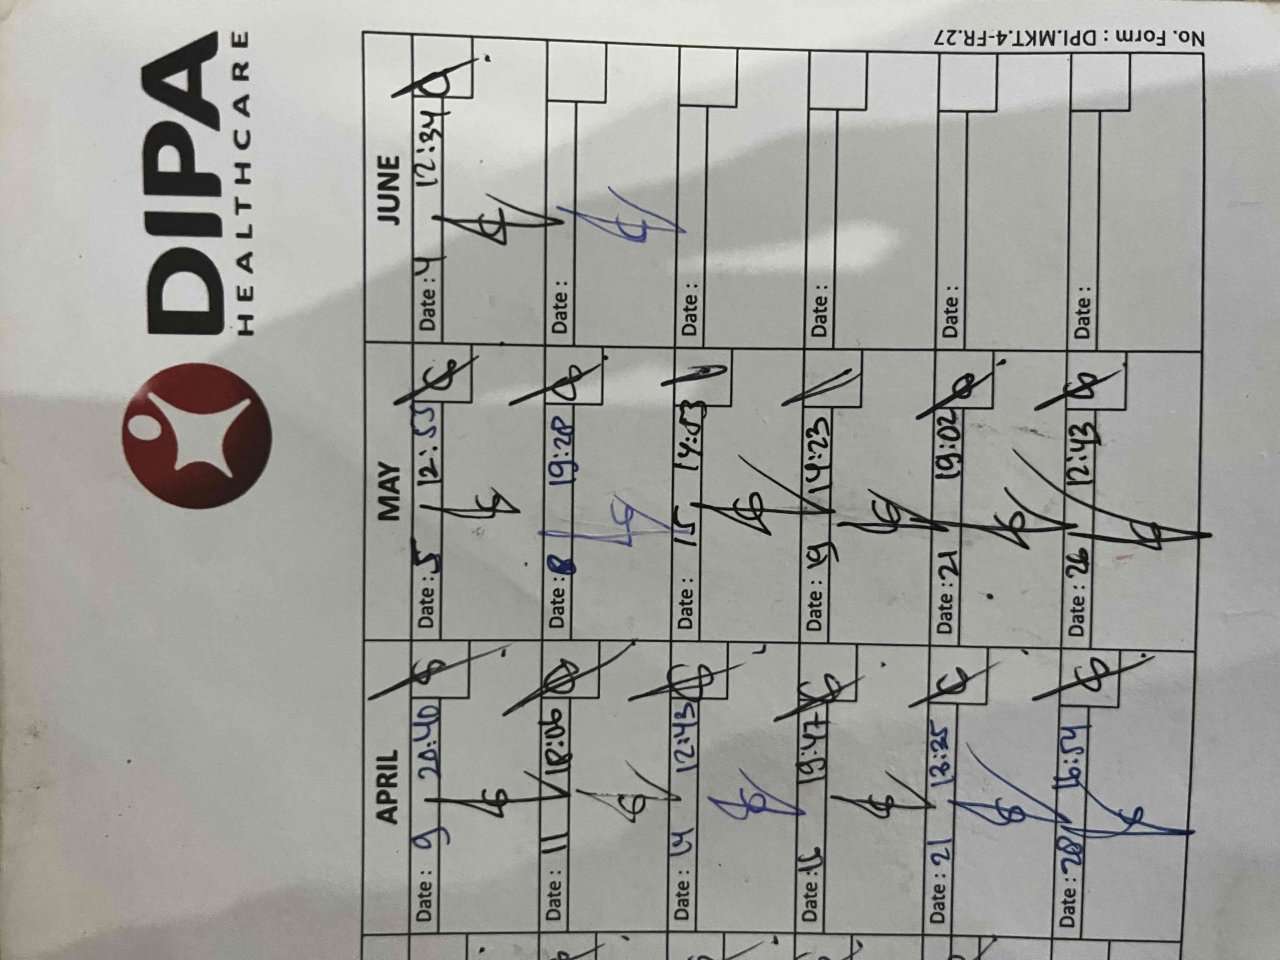 DIPA
HEALTHCARE
No. Form : DPI.MKT.4-FR.27
APRIL MAY JUNE
Date : 9 20:40 Date : 5 12:53 Date : 4 12:34
Date : 11 18:06 Date : 8 19:28 Date :
Date : 14 12:43 Date : 15 14:53 Date :
Date : 16 19:47 Date : 19 14:23 Date :
Date : 21 13:35 Date : 21 19:02 Date :
Date : 28 16:54 Date : 26 12:43 Date :